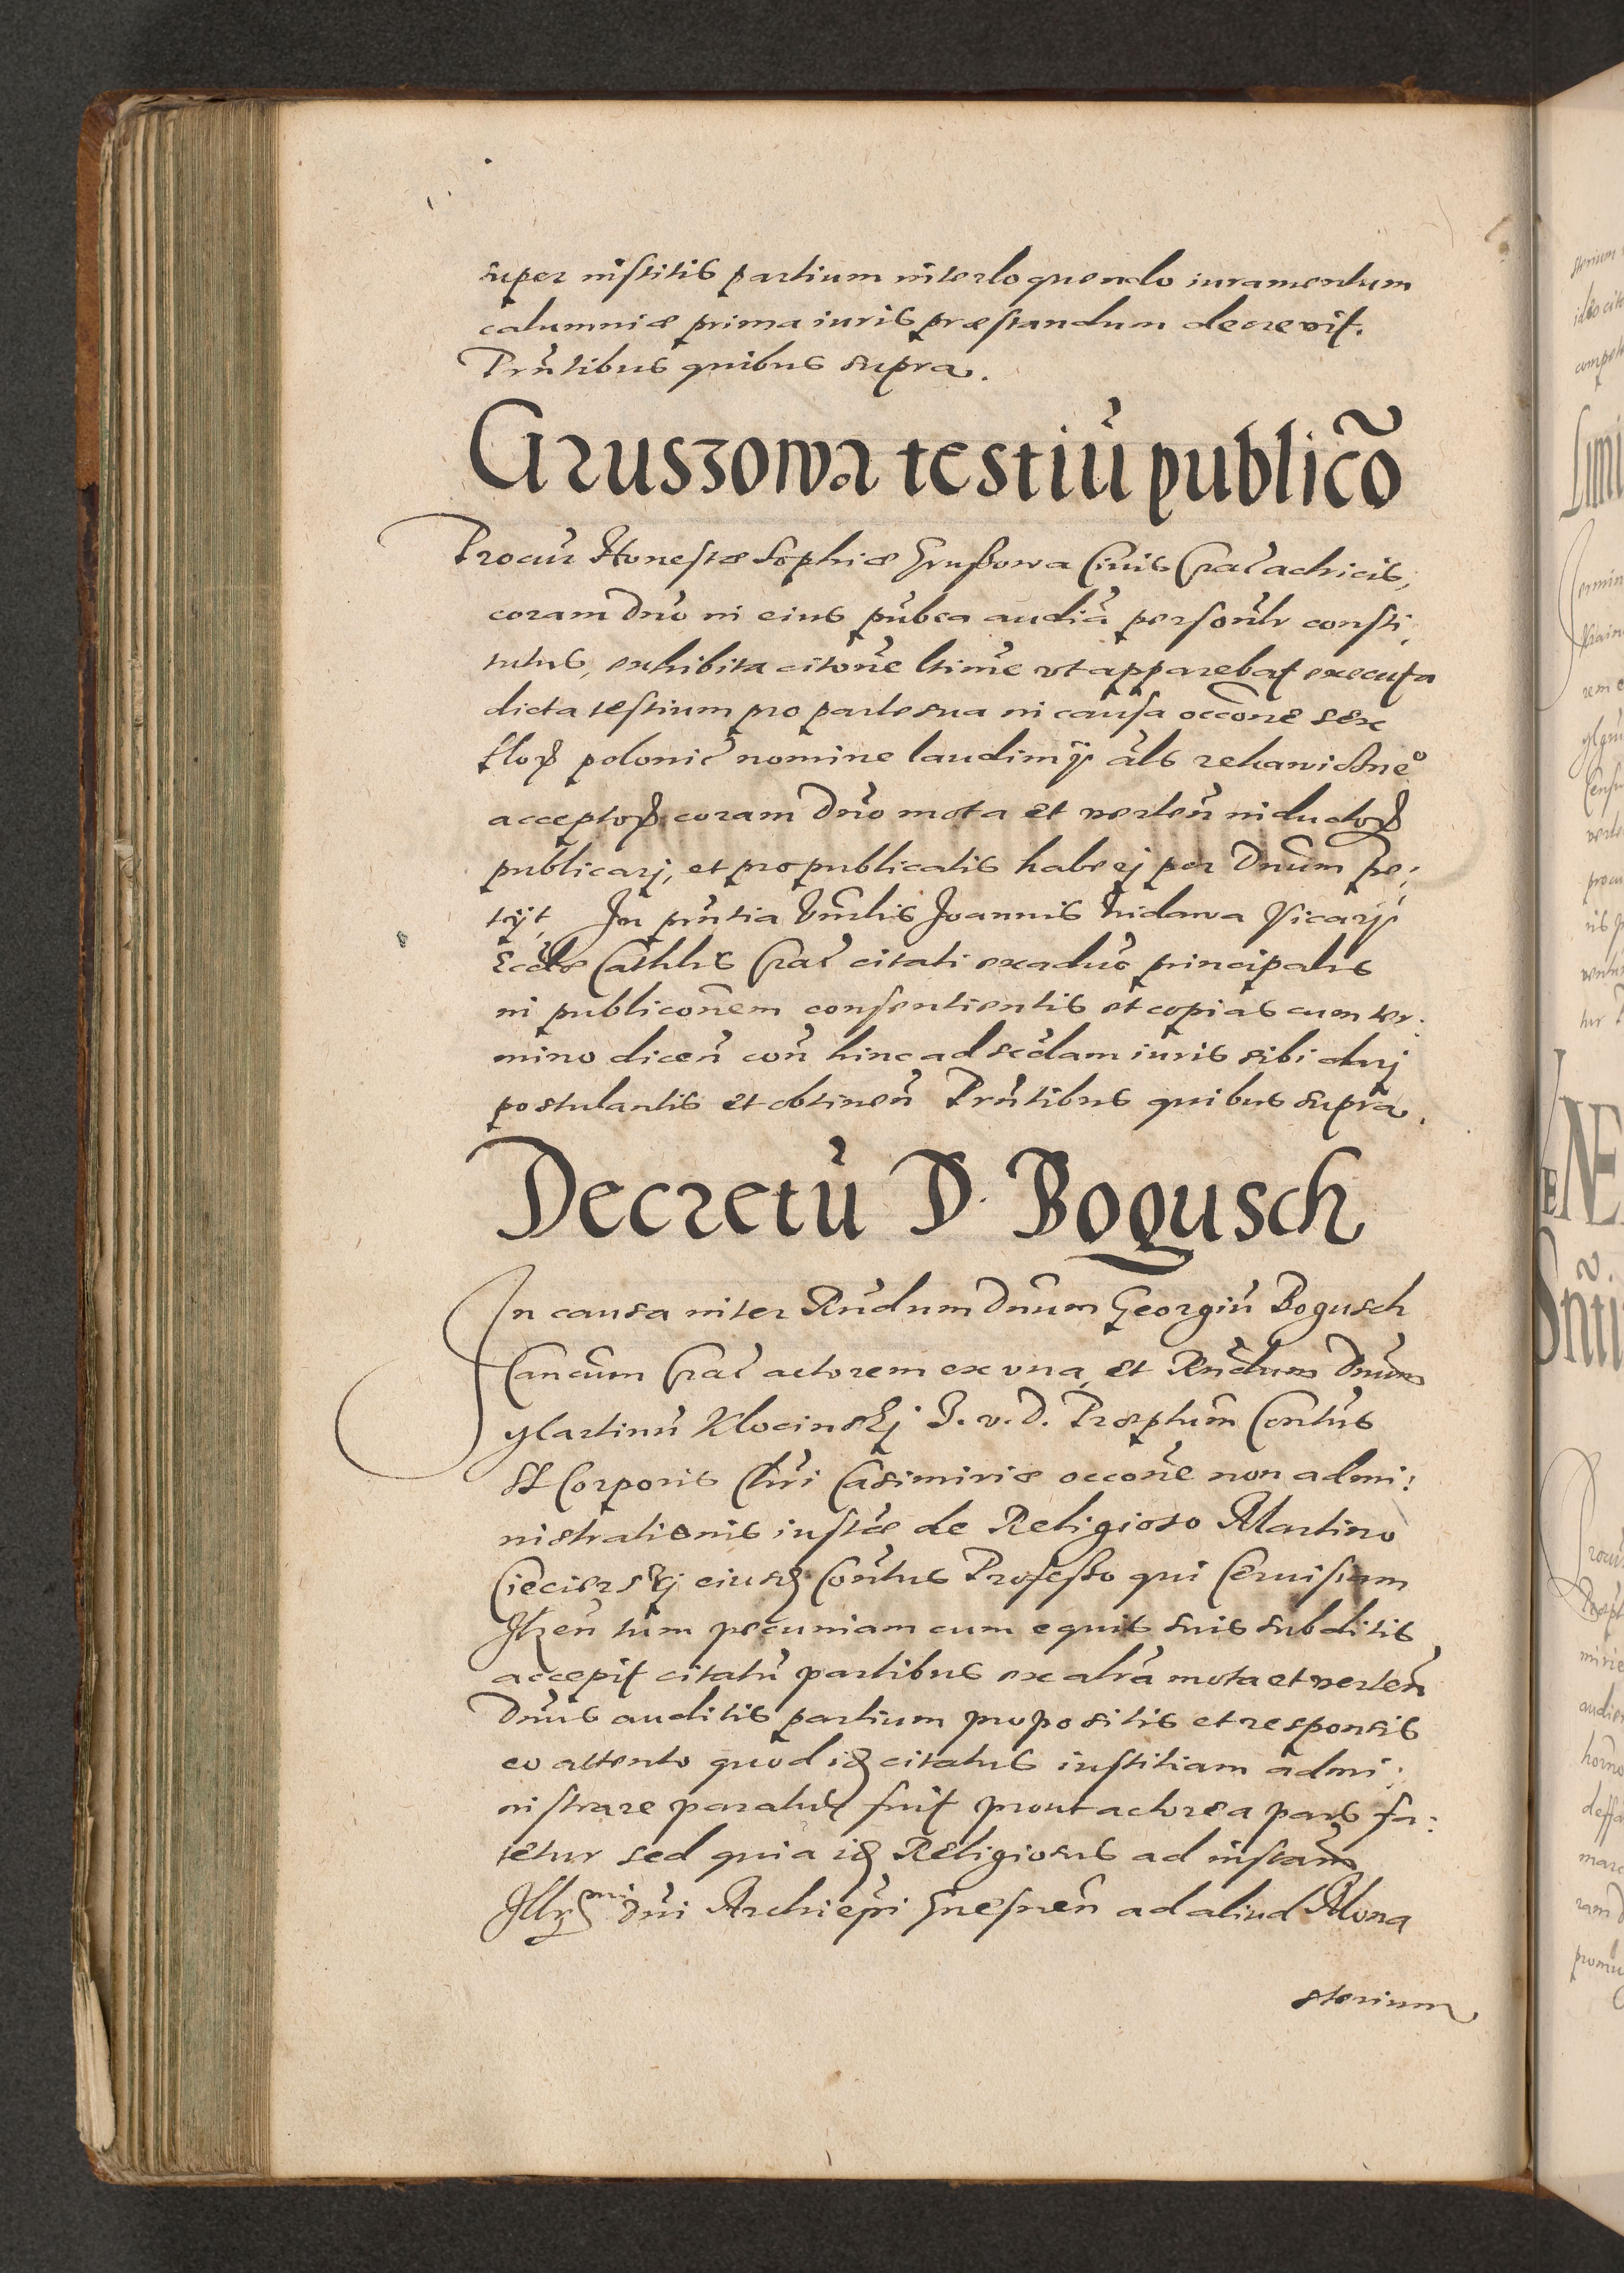 super institis partium interloquendo iuramentum
calumniæ prima iuris præstandum decrevit.
Prñtibus quibus supra.
Gruszowa testiũ publicõ
Procur̃ Honestæ Sophiæ Grußowa Civis Crac̃ actricis,
coram Dño in eius pub̃ca audiã personl̃r consti,
tutus, exhibita citoñe ltime vt apparebat executa
dicta testium pro parte sua in causa occoñe sex
floꝝ polonic̃ nomine laudimij al̃s
acceptoꝝ coram Dño mota et verteñ inductoꝝ
publicarj, et pro publicatis haberj per Dnũm pe:
tijt, In pñtia Vñlis Joannis Vicarij
Eccl̃æ Cathlis Crac̃ citati ex aduõ principalis
in publicoñem consentientis et copias cum ter:
mino diceñ coñ hinc ad scdam iuris sibi darj
postulantis et obtineñ Prñtibus quibus supra.
Decretũ D. Bogusch
In causa inter Rñdum Dnũm Georgiũ Bogusch
Cancum Crac̃ actorem ex vna, et Rñdum Dnũm
Martinũ Klocinskj J. v. D. Præptum Coñtus
SS Corporis Chri Casimiriæ occoñe non admi:
nistrationis iustæ de Religioso Martino
Ciecierskj eiusdꝫ Coñtus Professo qui Ceruisiam
tum pecuniam cum equis suis subditis
accepit citatũ partibus ex altrã mota et verteñ
Dnũs auditis partium propositis et responsis
eo attento quod idꝫ citatus iustitiam admi:
nistrare paratus fuit prout actorea pars fa:
tetur sed quia idꝫ Religiosus ad instam̃
Illr̃mi Dñi Archiep̃i Gnesneñ ad aliud Mona
sterium